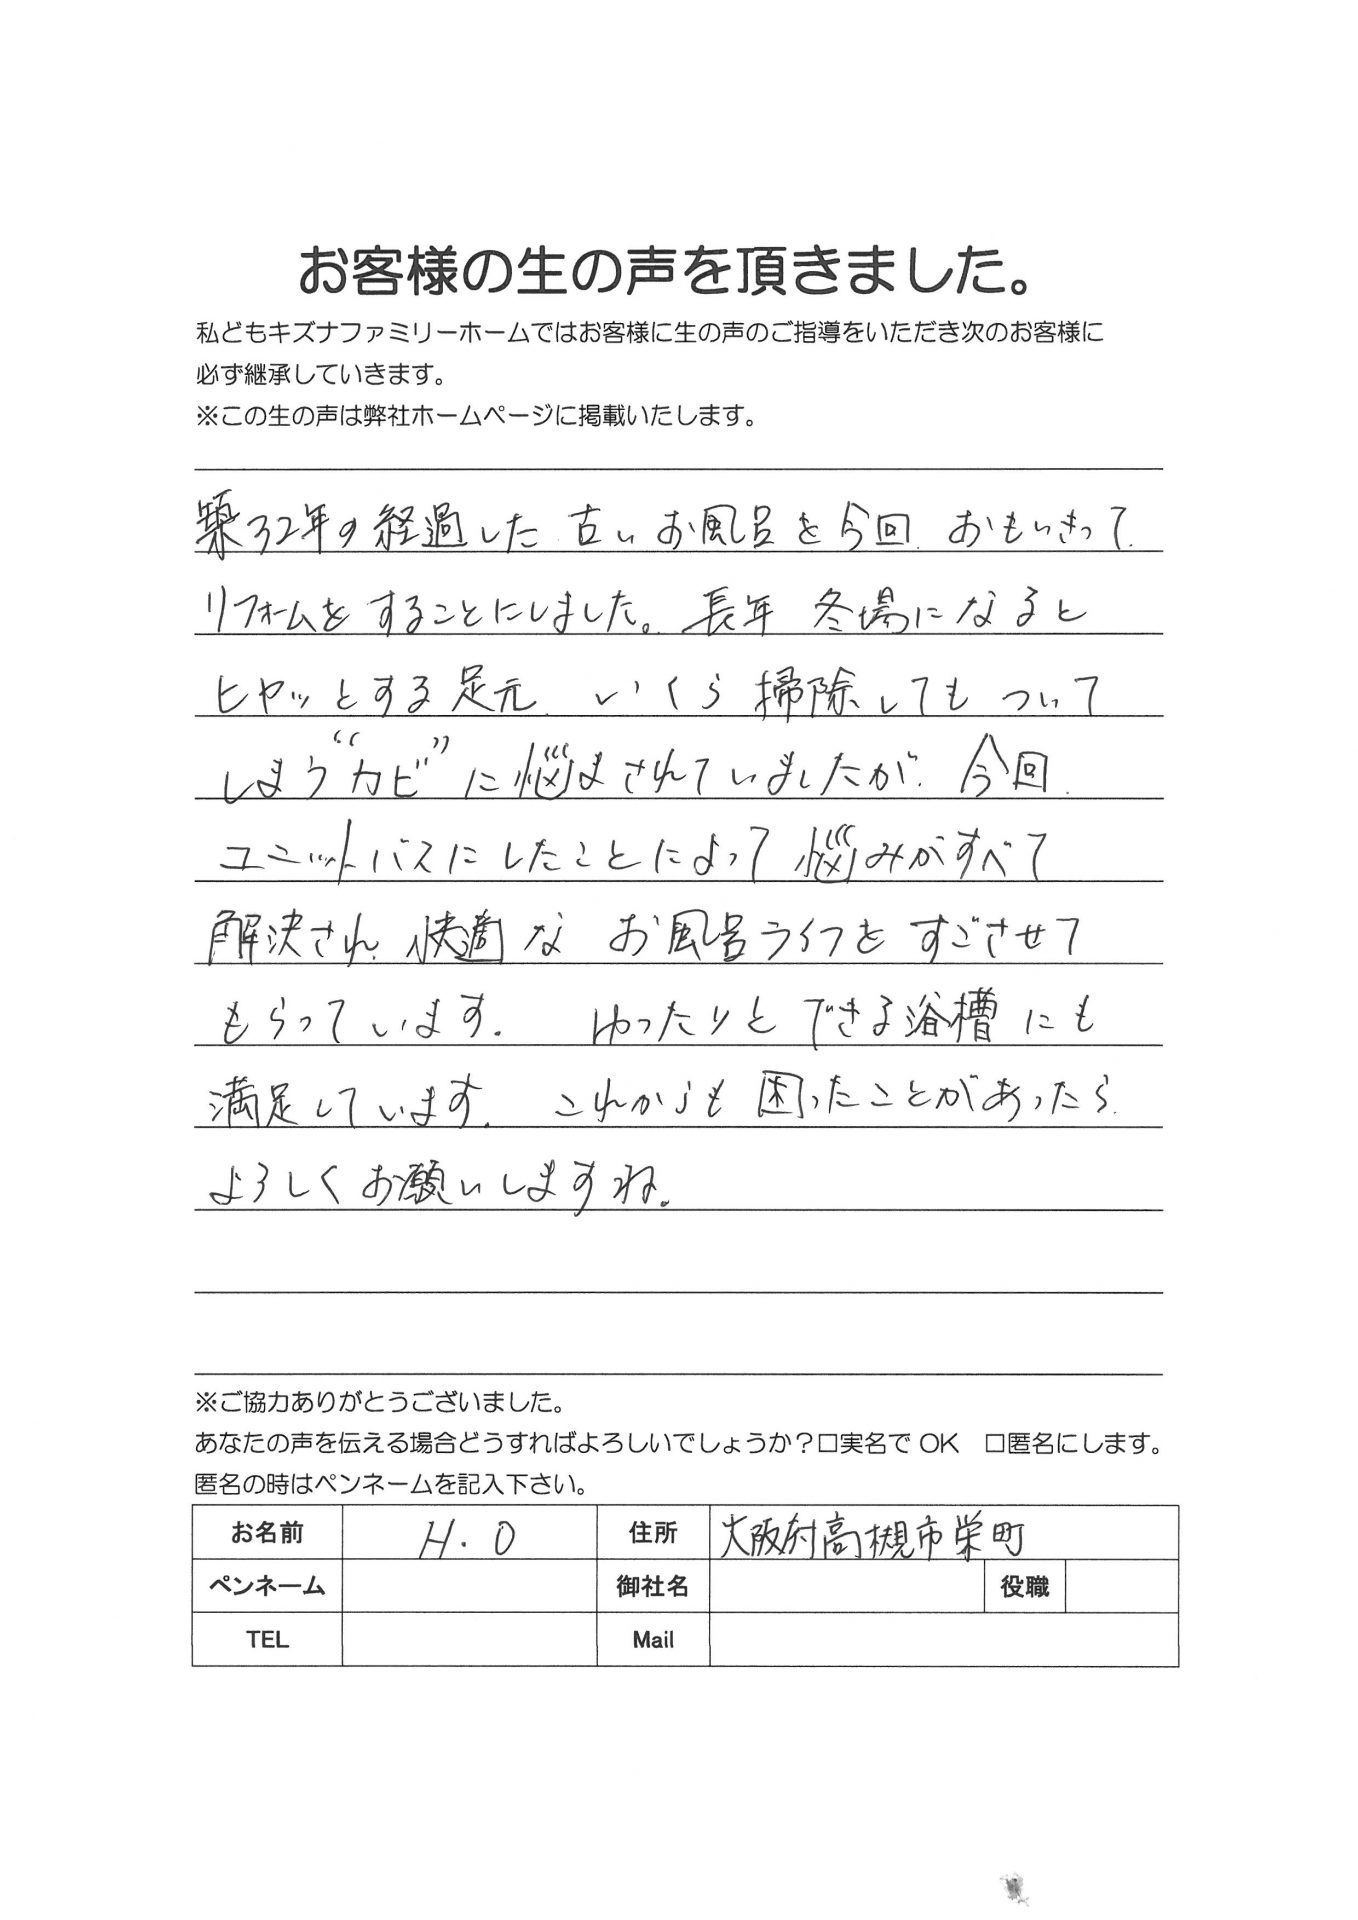 お客様の生の声を頂きました。
私どもキズナファミリーホームではお客様に生の声のご指導をいただき次のお客様に
必ず継承していきます。
※この生の声は弊社ホームページに掲載いたします。
築32年の経過した 古いお風呂を今回、おもいきって、
リフォームをすることにしました。長年 冬場になると
ヒヤッとする足元、いくら掃除してもついて
しまう“カビ”に悩まされていましたが、今回、
ユニットバスにしたことによって悩みがすべて
解決され、快適な お風呂ライフをすごさせて
もらっています。 ゆったりとできる浴槽にも
満足しています。 これからも困ったことがあったら、
よろしくお願いしますね。
※ご協力ありがとうございました。
あなたの声を伝える場合どうすればよろしいでしょうか?□実名で OK □匿名にします。
匿名の時はペンネームを記入下さい。
お名前 H.O 住所 大阪府高槻市栄町
ペンネーム 御社名 役職
TEL Mail